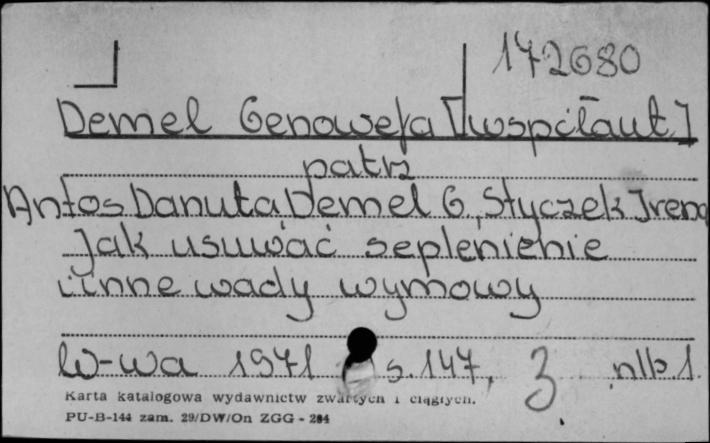 172680
Demel Genowefa [współaut.]
patrz
Antos Danuta, Demel G., Styczek Irena
Jak usuwać seplenienie
i inne wady wymowy
W-wa 1971 s. 147, 3 nlb 1.
Karta katalogowa wydawnictw zwartych i ciągłych.
PU-B-144 zam. 29/DW/On ZGG - 284